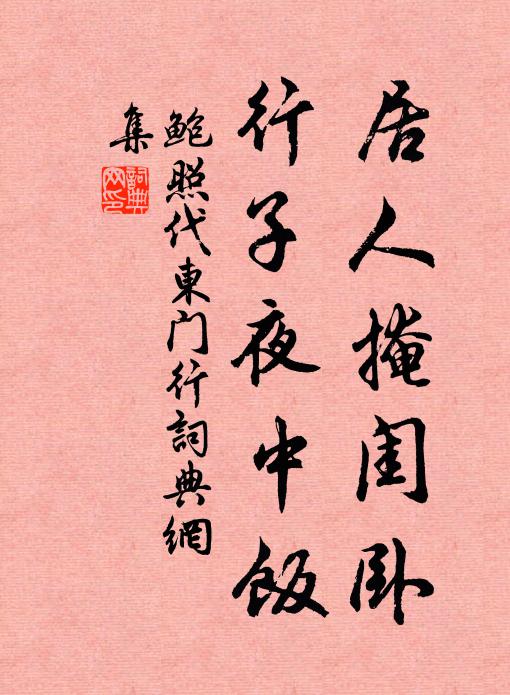 居人掩閨卧
行子夜中飯
鲍照代東门行詞典網
集
詞典
网印